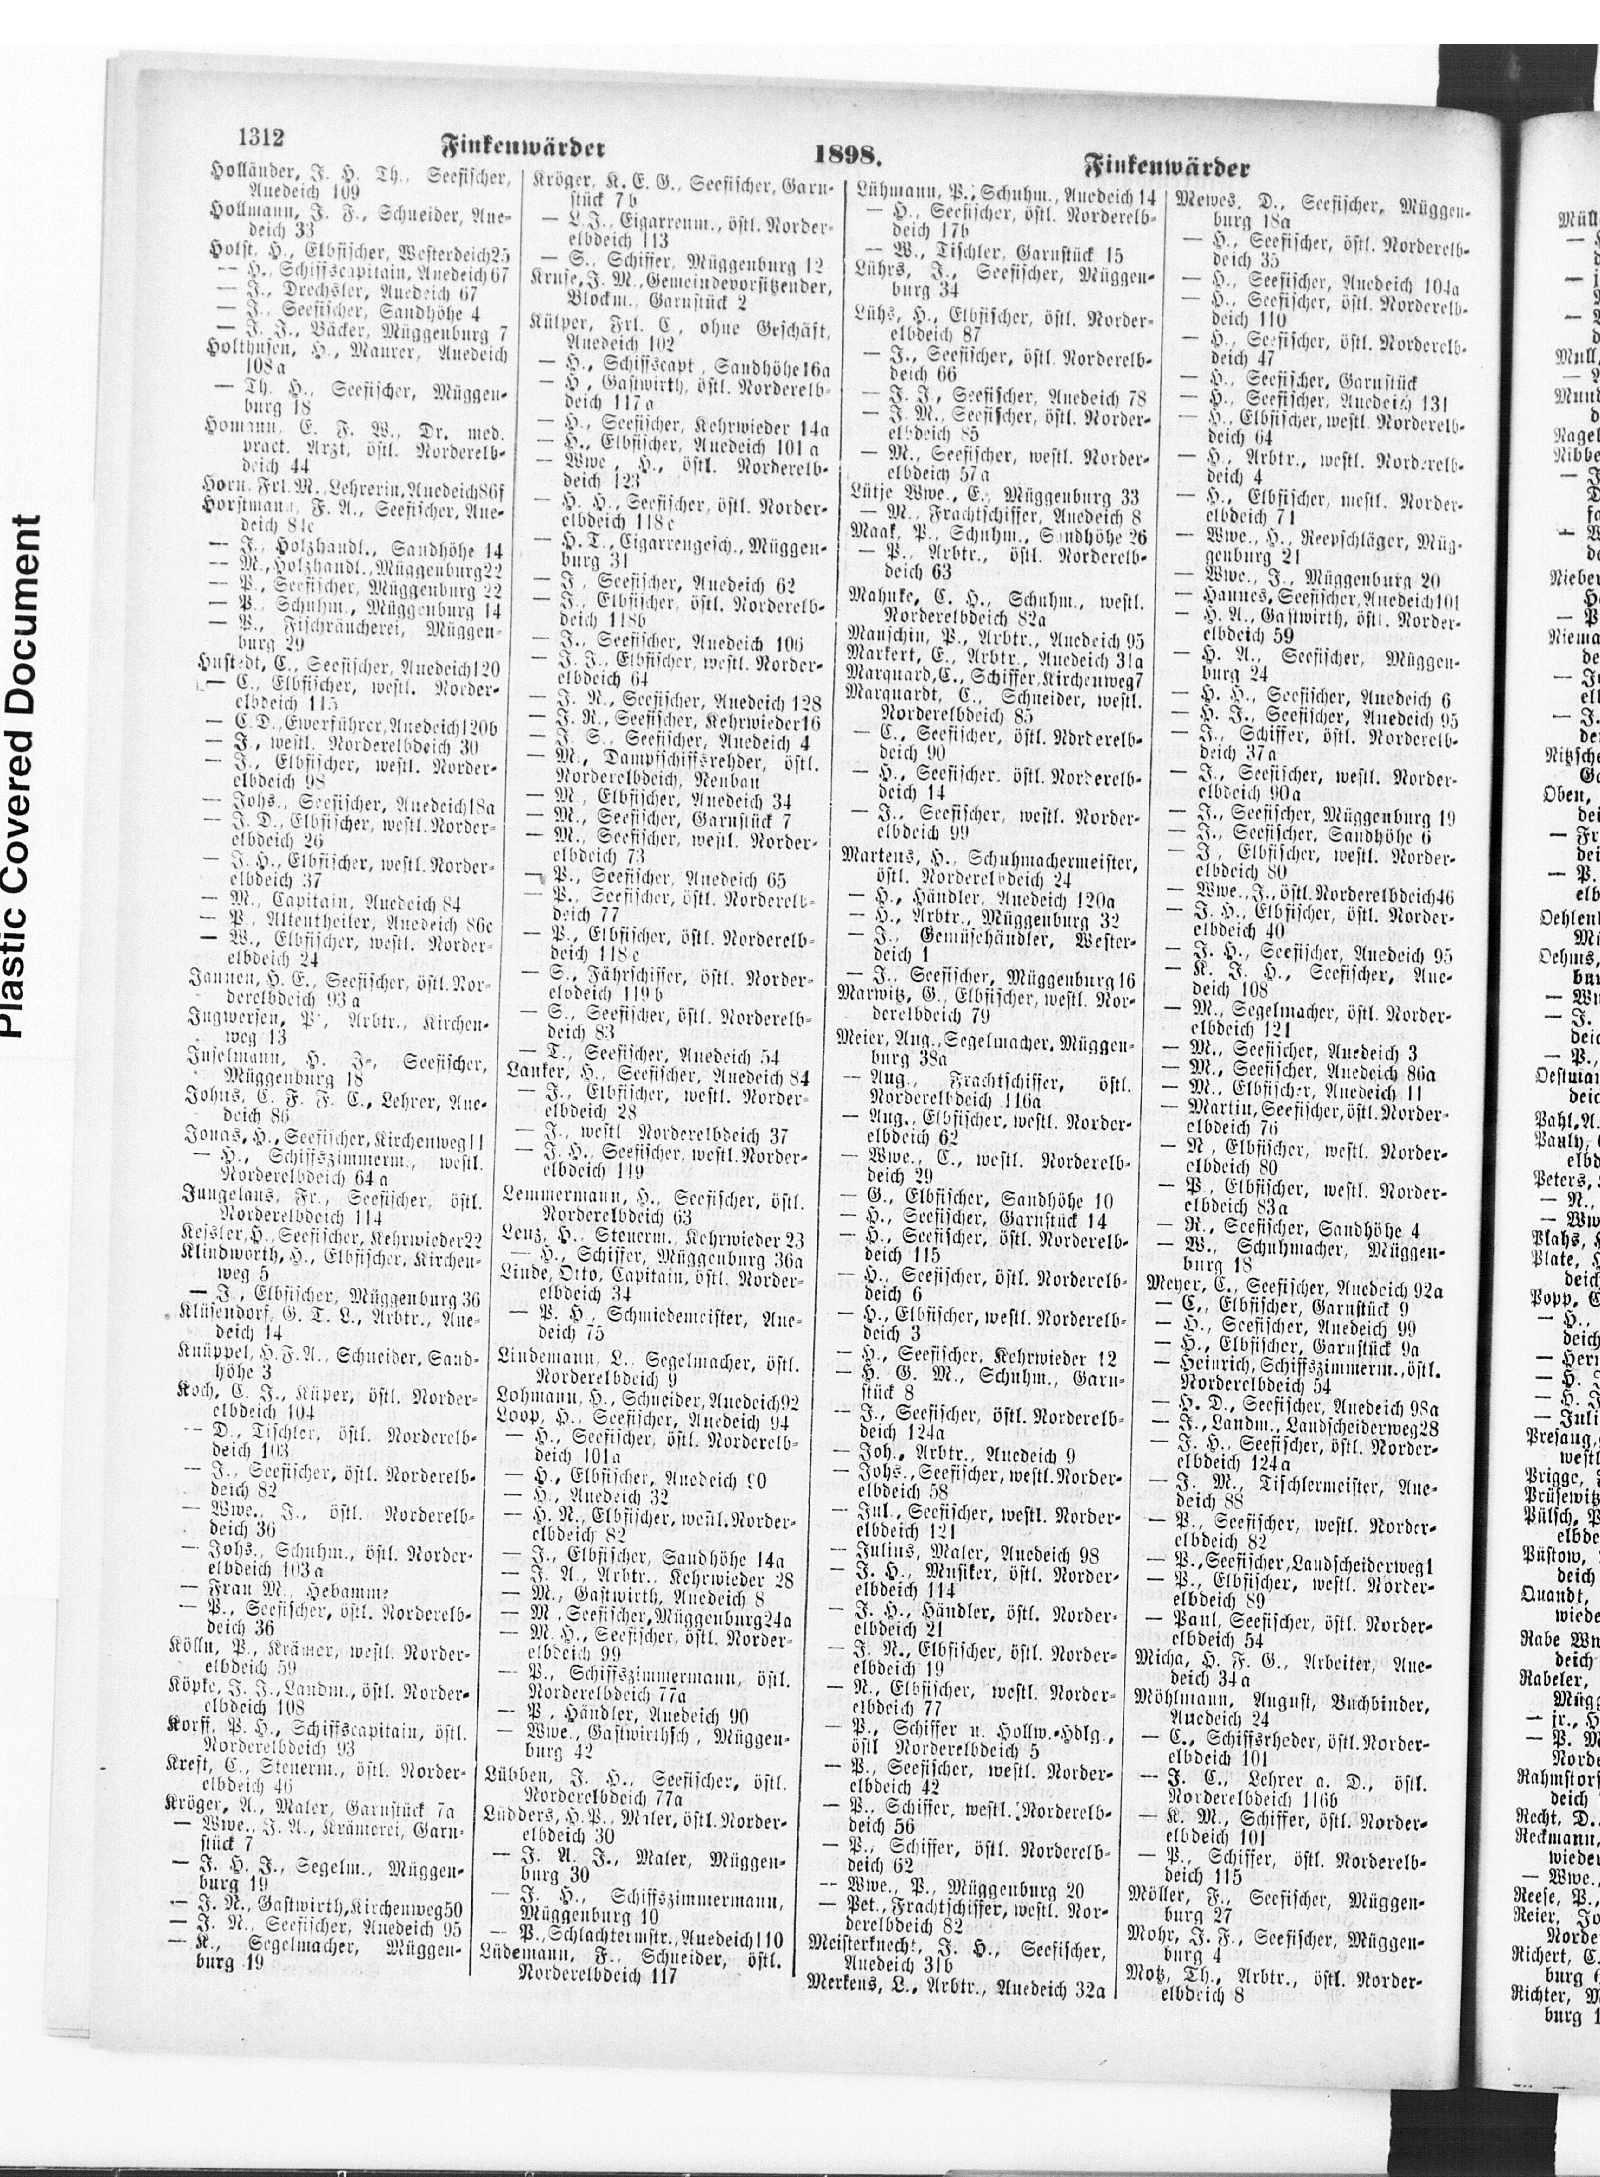 1312
Finkenwärder
1898.
Finkenwärder
Holländer, J. H. Th., Seefischer,
Auedeich 109
Hollmann, J. F., Schneider, Aue-
deich 33
Holst, H., Elbfischer, Westerdeich25
— H., Schiffscapitain, Auedeich 67
— J., Drechsler, Auedeich 67
— J., Seefischer, Sandhöhe 4
— J. J., Bäcker, Müggenburg 7
Holthusen, H., Maurer, Auedeich
108a
— Th. H., Seefischer, Müggen-
burg 18
Homann, E. F. W., Dr. med.
pract. Arzt, östl. Norderelb-
deich 44
Horn, Frl. M., Lehrerin, Auedeich86f
Horstmann, F. A., Seefischer, Aue-
deich 84c
— J., Holzhandl., Sandhöhe 14
— M., Holzhandl., Müggenburg22
— P., Seefischer, Müggenburg 22
— P., Schuhm., Müggenburg 14
— P., Fischräucherei, Müggen-
burg 29
Hustedt, C., Seefischer, Auedeich120
— C., Elbfischer, westl. Norder-
elbdeich 115
— C. D., Ewerführer, Auedeich120b
— J., westl. Norderelbdeich 30
— J., Elbfischer, westl. Norder-
elbdeich 98
— Johs., Seefischer, Auedeich18a
— J. D., Elbfischer, westl. Norder-
elbdeich 26
— J. H., Elbfischer, westl. Norder-
elbdeich 37
— M., Capitain, Auedeich 84
— P., Altentheiler, Auedeich 86c
— W., Elbfischer, westl. Norder-
elbdeich 24
Jannen, H. E., Seefischer, östl. Nor-
derelbdeich 93a
Ingwersen, P., Arbtr., Kirchen-
weg 13
Inselmann, H. J., Seefischer,
Müggenburg 18
Johns, C. F. F. C., Lehrer, Aue-
deich 86
Jonas, H., Seefischer, Kirchenweg11
— H., Schiffszimmerm., westl.
Norderelbdeich 64a
Jungclaus, Fr., Seefischer, östl.
Norderelbdeich 114
Kessler, H., Seefischer, Kehrwieder22
Klindworth, H., Elbfischer, Kirchen-
weg 5
— J., Elbfischer, Müggenburg 36
Klüsendorf, G. T. L., Arbtr., Aue-
deich 14
Knüppel, H. F. A., Schneider, Sand-
höhe 3
Koch, C. J., Küper, östl. Norder-
elbdeich 104
— D., Tischler, östl. Norderelb-
deich 103
— J., Seefischer, östl. Norderelb-
deich 82
— Wwe., J., östl. Norderelb-
deich 36
— Johs., Schuhm., östl. Norder-
elbdeich 103a
— Frau M., Hebamme
— P., Seefischer, östl. Norderelb-
deich 36
Kölln, P., Krämer, westl. Norder-
elbdeich 59
Köpke, J. J., Landm., östl. Norder-
elbdeich 108
Korff, P. H., Schiffscapitain, östl.
Norderelbdeich 93
Kreft, C., Steuerm., östl. Norder-
elbdeich 46
Kröger, A., Maler, Garnstück 7a
— Wwe., J. A., Krämerei, Garn-
stück 7
— J. H. J., Segelm., Müggen-
burg 19
— J. N., Gastwirth, Kirchenweg50
— J. N., Seefischer, Auedeich 95
— K., Segelmacher, Müggen-
burg 19
Kröger, K. E. G., Seefischer, Garn-
stück 7b
— L. J., Cigarrenm., östl. Norder-
elbdeich 113
— S., Schiffer, Müggenburg 12
Kruse, J. M., Gemeindevorsitzender,
Blockm., Garnstück 2
Külper, Frl. C., ohne Geschäft,
Auedeich 102
— H., Schiffscapt., Sandhöhe16a
— H., Gastwirth, östl. Norderelb-
deich 117a
— H., Seefischer, Kehrwieder 14a
— H., Elbfischer, Auedeich 101a
— Wwe., H., östl. Norderelb-
deich 123
— H. H., Seefischer, östl. Norder-
elbdeich 118c
— H. T., Cigarrengesch., Müggen-
burg 31
— J., Seefischer, Auedeich 62
— J., Elbfischer, östl. Norderelb-
deich 118b
— J., Seefischer, Auedeich 106
— J. J., Elbfischer, westl. Norder-
elbdeich 64
— J. N., Seefischer, Auedeich 128
— J. N., Seefischer, Kehrwieder16
— J. S., Seefischer, Auedeich 4
— M., Dampfschiffsrehder, östl.
Norderelbdeich, Neubau
— M., Elbfischer, Auedeich 34
— M., Seefischer, Garnstück 7
— M., Seefischer, westl. Norder-
elbdeich 73
— P., Seefischer, Auedeich 65
— P., Seefischer, östl. Norderelb-
deich 77
— P., Elbfischer, östl. Norderelb-
deich 118c
— S., Jährschiffer, östl. Norder-
elbdeich 119b
— S., Seefischer, östl. Norderelb-
deich 83
— T., Seefischer, Auedeich 54
Lanker, H., Seefischer, Auedeich 84
— J., Elbfischer, westl. Norder-
elbdeich 28
— J., westl. Norderelbdeich 37
— J. H., Seefischer, westl. Norder-
elbdeich 119
Lemmermann, H., Seefischer, östl.
Norderelbdeich 63
Lenz, H., Steuerm., Kehrwieder 23
— H., Schiffer, Müggenburg 36a
Linde, Otto, Capitain, östl. Norder-
elbdeich 34
— P. H., Schmiedemeister, Aue-
deich 75
Lindemann, L., Segelmacher, östl.
Norderelbdeich 9
Lohmann, H., Schneider, Auedeich92
Loop, H., Seefischer, Auedeich 94
— H., Seefischer, östl. Norderelb-
deich 101a
— H., Elbfischer, Auedeich 90
— H., Auedeich 32
— H. N., Elbfischer, westl. Norder-
elbdeich 82
— J., Elbfischer, Sandhöhe 14a
— J. A., Arbtr., Kehrwieder 28
— M., Gastwirth, Auedeich 8
— M., Seefischer, Müggenburg24a
— M. H., Seefischer, östl. Norder-
elbdeich 99
— P., Schiffszimmermann, östl.
Norderelbdeich 77a
— P., Händler, Auedeich 90
— Wwe., Gastwirthsch., Müggen-
burg 42
Lübben, J. H., Seefischer, östl.
Norderelbdeich 77a
Lüdders, H. P., Maler, östl. Norder-
elbdeich 30
— J. A. J., Maler, Müggen-
burg 30
— J. H., Schiffszimmermann,
Müggenburg 10
— P., Schlachtermstr., Auedeich110
Lüdemann, F., Schneider, östl.
Norderelbdeich 117
Lühmann, P., Schuhm., Auedeich 14
— H., Seefischer, östl. Norderelb-
deich 17b
— W., Tischler, Garnstück 15
Lührs, J., Seefischer, Müggen-
burg 34
Lühs, H., Elbfischer, östl. Norder-
elbdeich 87
— J., Seefischer, östl. Norderelb-
deich 66
— J. J., Seefischer, Auedeich 78
— J. M., Seefischer, östl. Norder-
elbdeich 85
— M., Seefischer, westl. Norder-
elbdeich 57a
Lütje Wwe., E., Müggenburg 33
— M., Frachtschiffer, Auedeich 8
Maak, P., Schuhm., Sandhöhe 26
— P., Arbtr., östl. Norderelb-
deich 63
Mahnke, C. H., Schuhm., westl.
Norderelbdeich 82a
Manschin, P., Arbtr., Auedeich 95
Markert, E., Arbtr., Auedeich 31a
Marquard, C., Schiffer, Kirchenweg7
Marquardt, C., Schneider, westl.
Norderelbdeich 85
— C., Seefischer, östl. Norderelb-
deich 90
— H., Seefischer, östl. Norderelb-
deich 14
— J., Seefischer, westl. Norder-
elbdeich 99
Martens, H., Schuhmachermeister,
östl. Norderelbdeich 24
— H., Händler, Auedeich 120a
— H., Arbtr., Müggenburg 32
— J., Gemüsehändler, Wester-
deich 1
— J., Seefischer, Müggenburg 16
Marwitz, G., Elbfischer, westl. Nor-
derelbdeich 79
Meier, Aug., Segelmacher, Müggen-
burg 38a
— Aug., Frachtschiffer, östl.
Norderelbdeich 116a
— Aug., Elbfischer, westl. Norder-
elbdeich 62
— Wwe., C., westl. Norderelb-
deich 29
— G., Elbfischer, Sandhöhe 10
— H., Seefischer, Garnstück 14
— H., Seefischer, östl. Norderelb-
deich 115
— H., Seefischer, östl. Norderelb-
deich 6
— H., Elbfischer, westl. Norderelb-
deich 3
— H., Seefischer, Kehrwieder 12
— H. G. M., Schuhm., Garn-
stück 8
— J., Seefischer, östl. Norderelb-
deich 124a
— Joh., Arbtr., Auedeich 9
— Johs., Seefischer, westl. Norder-
elbdeich 58
— Jul., Seefischer, westl. Norder-
elbdeich 121
— Julius, Maler, Auedeich 98
— J. H., Musiker, östl. Norder-
elbdeich 114
— J. H., Händler, östl. Norder-
elbdeich 21
— J. N., Elbfischer, östl. Norder-
elbdeich 19
— N., Elbfischer, westl. Norder-
elbdeich 77
— P., Schiffer u. Hollw.-Hdlg.,
östl. Norderelbdeich 5
— P., Seefischer, westl. Norder-
elbdeich 42
— P., Schiffer, westl. Norderelb-
deich 56
— P., Schiffer, östl. Norderelb-
deich 62
— Wwe., P., Müggenburg 20
— Pet., Frachtschiffer, westl. Nor-
derelbdeich 82
Meisterknecht, J. H., Seefischer,
Auedeich 31b
Merkens, L., Arbtr., Auedeich 32a
Mewes, D., Seefischer, Müggen-
burg 18a
— H., Seefischer, östl. Norderelb-
deich 35
— H., Seefischer, Auedeich 104a
— H., Seefischer, östl. Norderelb-
deich 110
— H., Seefischer, östl. Norderelb-
deich 47
— H., Seefischer, Garnstück
— H., Seefischer, Auedeich 131
— H., Elbfischer, westl. Norderelb-
deich 64
— H., Arbtr., westl. Norderelb-
deich 4
— H., Elbfischer, westl. Norder-
elbdeich 71
— Wwe., H., Reepschläger, Müg-
genburg 21
— Wwe., J., Müggenburg 20
— Hannes, Seefischer, Auedeich101
— H. A., Gastwirth, östl. Norder-
elbdeich 59
— H. A., Seefischer, Müggen-
burg 24
— H. H., Seefischer, Auedeich 6
— H. J., Seefischer, Auedeich 95
— J., Schiffer, östl. Norderelb-
deich 37a
— J., Seefischer, westl. Norder-
elbdeich 90a
— J., Seefischer, Müggenburg 19
— J., Seefischer, Sandhöhe 6
— J., Elbfischer, westl. Norder-
elbdeich 80
— Wwe., J., östl. Norderelbdeich46
— J. H., Elbfischer, östl. Norder-
elbdeich 40
— J. H., Seefischer, Auedeich 95
— K. J. H., Seefischer, Aue-
deich 108
— M., Segelmacher, östl. Norder-
elbdeich 121
— M., Seefischer, Auedeich 3
— M., Seefischer, Auedeich 86a
— M., Elbfischer, Auedeich 11
— Martin, Seefischer, östl. Norder-
elbdeich 76
— N., Elbfischer, westl. Norder-
elbdeich 80
— P., Elbfischer, westl. Norder-
elbdeich 83a
— R., Seefischer, Sandhöhe 4
— W., Schuhmacher, Müggen-
burg 18
Meyer, C., Seefischer, Auedeich 92a
— C., Elbfischer, Garnstück 9
— H., Seefischer, Auedeich 99
— H., Elbfischer, Garnstück 9a
— Heinrich, Schiffszimmerm., östl.
Norderelbdeich 54
— H. D., Seefischer, Auedeich 98a
— J., Landm., Landscheiderweg28
— J. H., Seefischer, östl. Norder-
elbdeich 124a
— J. M., Tischlermeister, Aue-
deich 88
— P., Seefischer, westl. Norder-
elbdeich 82
— P., Seefischer, Landscheiderweg1
— P., Elbfischer, westl. Norder-
elbdeich 89
— Paul, Seefischer, östl. Norder-
elbdeich 54
Micha, H. F. G., Arbeiter, Aue-
deich 34a
Möhlmann, August, Buchbinder,
Auedeich 24
— C., Schiffsrheder, östl. Norder-
elbdeich 101
— J. C., Lehrer a. D., östl.
Norderelbdeich 116b
— K. M., Schiffer, östl. Norder-
elbdeich 101
— P., Schiffer, östl. Norderelb-
deich 115
Möller, F., Seefischer, Müggen-
burg 27
Mohr, J. F., Seefischer, Müggen-
burg 4
Motz, Th., Arbtr., östl. Norder-
elbdeich 8
Plastic Covered Document